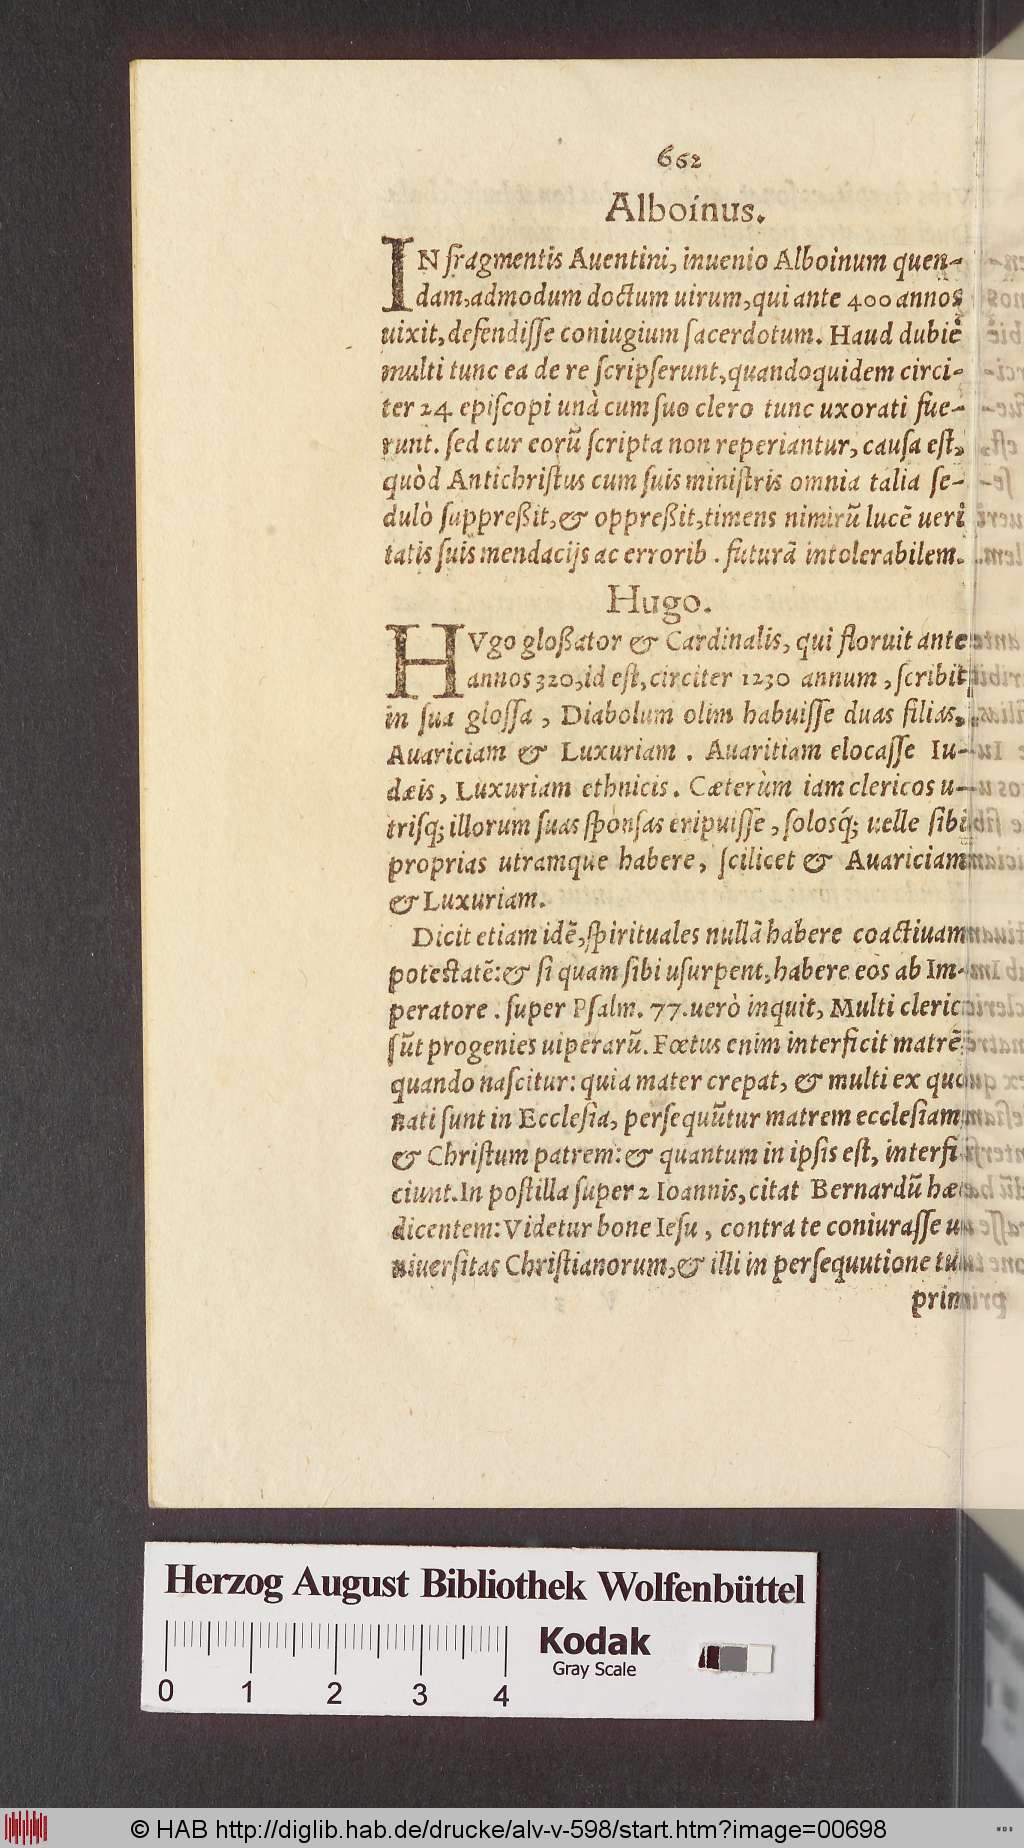 662
Alboinus.
IN fragmentis Auentini, inuenio Alboinum quen-
dam, admodum doctum uirum, qui ante 400 annos
uixit, defendisse coniugium sacerdotum. Haud dubiè
multi tunc ea de re scripserunt, quandoquidem circi-
ter 24 episcopi unà cum suo clero tunc uxorati fue-
runt. sed cur eorũ scripta non reperiantur, causa est,
quòd Antichristus cum suis ministris omnia talia se-
dulò suppreßit, & oppreßit, timens nimirũ lucẽ ueri
tatis suis mendacijs ac errorib. futurã intolerabilem.
Hugo.
HVgo gloßator & Cardinalis, qui floruit ante
annos 320, id est, circiter 1230 annum, scribit
in sua glossa, Diabolum olim habuisse duas filias,
Auariciam & Luxuriam. Auaritiam elocasse Iu-
dæis, Luxuriam ethnicis. Cæterùm iam clericos u-
trisq; illorum suas sponsas eripuisse, solosq́; uelle sibi
proprias utramque habere, scilicet & Auariciam
& Luxuriam.
Dicit etiam idẽ, spirituales nullã habere coactiuam
potestatẽ: & si quam sibi usurpent, habere eos ab Im-
peratore. super Psalm. 77. uerò inquit, Multi clerici
sũt progenies uiperarũ. Fœtus enim interficit matrẽ
quando nascitur: quia mater crepat, & multi ex quo
nati sunt in Ecclesia, persequũtur matrem ecclesiam
& Christum patrem: & quantum in ipsis est, interfi
ciunt. In postilla super 2 Ioannis, citat Bernardũ hæc
dicentem: Videtur bone Iesu, contra te coniurasse u
niuersitas Christianorum, & illi in persequutione tua
prim
Herzog August Bibliothek Wolfenbüttel
Kodak
Gray Scale
0 1 2 3 4
© HAB http://diglib.hab.de/drucke/alv-v-598/start.htm?image=00698